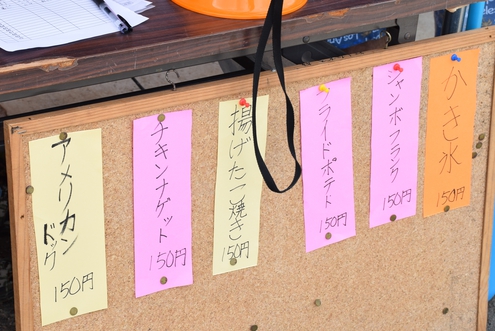 アメリカンドック
150円
チキンナゲット
150円
揚げたこ焼き
150円
フライドポテト
150円
ジャンボフランク
150円
かき氷
150円